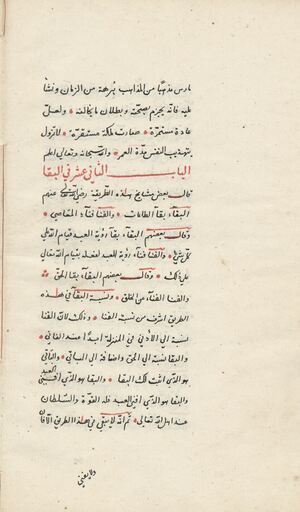 مارس مذهبًا من المذاهب برهة من الزمان ونشأ
عليه فانه يجزم بصحته وبطلان ما يخالفه ولعل
عادة مستمرة صارت ملكة مستقرة لا تزول
بتهذيب النفس مدة العمر والله سبحانه وتعالى اعلم
الباب الثانى عشر فى البقا
قال بعض مشايخ هذه الطريقة رضى الله عنهم
البقاء بقا الطاعات والفنا فناء المعاصى
وقال بعضهم البقاء بقا رؤية العبد قيام الله على
كل شئ والفنا فناء رؤية العبد لفعله بقيام الله تعالى
على ذلك وقال بعضهم البقاء بقا بالحق
والفنا الفناء عن الخلق ونسبة البقا فى هذه
الطريق اشرف من نسبة الفنا وذلك لان الفنا
نسبة الى الادنى فى المنزلة ابدا عند الفانى
والبقا نسبة الى الحق واضافة الى الباقى والباقى
هو الذى اثبت لك البقا والبقا هو الذى
والفنا هو الذى افنى العبد فله القوة والسلطان
عند اهل الله تعالى ثم انه لا يبقى فى هذا الطريق الا فان
ولا يفنى